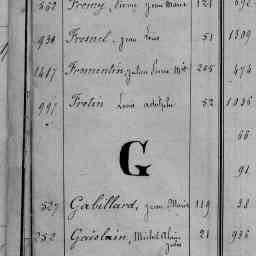 562 Fremy, Pierre Jean Marie 121 692
930 Fresnel, Jean Louis 51 1309
1417 Fromentin, Julien Pierre Mie 205 474
997 Frotin Louis Adolphe 52 1036
66
G
91
527 Gabillard, Jean Marie 119 38
252 Gaislain, Michel Alain 21 936
Jules